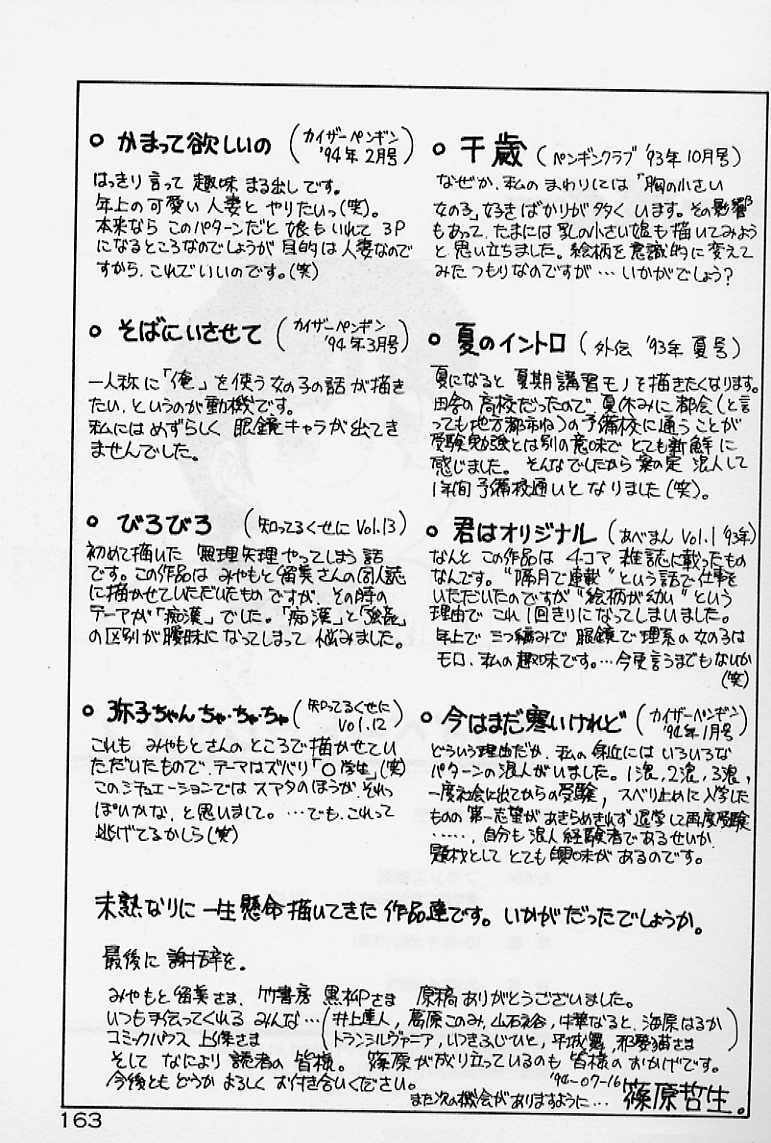 ○ かまって欲しいの（カイザーペンギン
'94年2月号）
はっきり言って 趣味 まる出しです。
年上の可愛い 人妻と やりたいっ(笑)。
本来なら このパターンだと 娘もいれて 3P
になるところなのでしょうが 目的は人妻なので
すから、これでいいのです。(笑)
○ そばにいさせて（カイザーペンギン
'94年3月号）
一人称に「俺」を使う女の子の話が描き
たい、というのが動機です。
私にはめずらしく 眼鏡キャラが出てき
ませんでした。
○ びろびろ（知ってるくせに Vol.13）
初めて描いた 無理矢理やってしまう話
です。この作品は みやもと留美さんの同人誌
に描かせていただいたものですが、その時の
テーマが「痴漢」でした。「痴漢」と「強姦」
の区別が曖昧になってしまって 悩みました。
○ 弥子ちゃん ちゃ・ちゃ・ちゃ（知ってるくせに
Vol.12）
これも みやもとさんの ところで描かせてい
ただいたもので、テーマはズバリ「〇学生」(笑)
このシチュエーションでは スマタのほうが、それっ
ぽいかな、と思いまして。…でも、これって
逃げてるかしら(笑)
○ 千歳（ペンギンクラブ '93年10月号）
なぜか、私の まわりには「胸の小さい
女の子」好きばかりが多く います。その影響
もあって、たまには 乳の小さい娘も描いてみよう
と思い立ちました。絵柄を意識的に変えて
みた つもりなのですが … いかがでしょう?
○ 夏のイントロ（外伝 '93年 夏号）
夏になると 夏期講習モノを描きたくなります。
田舎の高校だったので 夏休みに都会(と言
っても地方都市ね)の予備校に通うことが
受験勉強とは別の意味で とても新鮮に
感じました。そんなでしたから 案の定 浪人して
1年間 予備校通いと なりました(笑)。
○ 君はオリジナル（あべまん Vol.1 '93年）
なんと この作品は 4コマ 雑誌に載ったもの
なんです。"隔月で連載"という話で仕事を
いただいたのですが "絵柄が幼い"という
理由で これ1回きりになってしまいました。
年上で 三つ編みで 眼鏡で 理系の女の子は
モロ、私の趣味です。…今更言うまでもないか
(笑)
○ 今はまだ寒いけれど（カイザーペンギン
'94年1月号）
どういう理由だか、私の身近には いろいろな
パターンの浪人がいました。1浪、2浪、3浪、
一度社会に出てからの受験、スベリ止めに入学した
ものの 第一志望が あきらめきれず 退学して再度受験
……、自分も 浪人経験者であるせいか、
題材として とても興味が あるのです。
未熟なりに 一生懸命描いてきた 作品達です。いかがだったでしょうか。
最後に 謝辞を。
みやもと留美さま、竹書房 黒柳さま 原稿ありがとうございました。
いつも手伝ってくれる みんな…（井上達人, 葛原このみ, 山石裕谷, 中華なると, 海原はるか
コミックハウス 上條さま トランシルヴァニア, いつきふじひと, 平城舞, 邪婆猫さま）
そして なにより 読者の皆様。篠原が成り立っているのも 皆様のおかげです。
今後とも どうか よろしく お付き合いください。 '94-07-16
また次の機会がありますように… 篠原哲生。
163